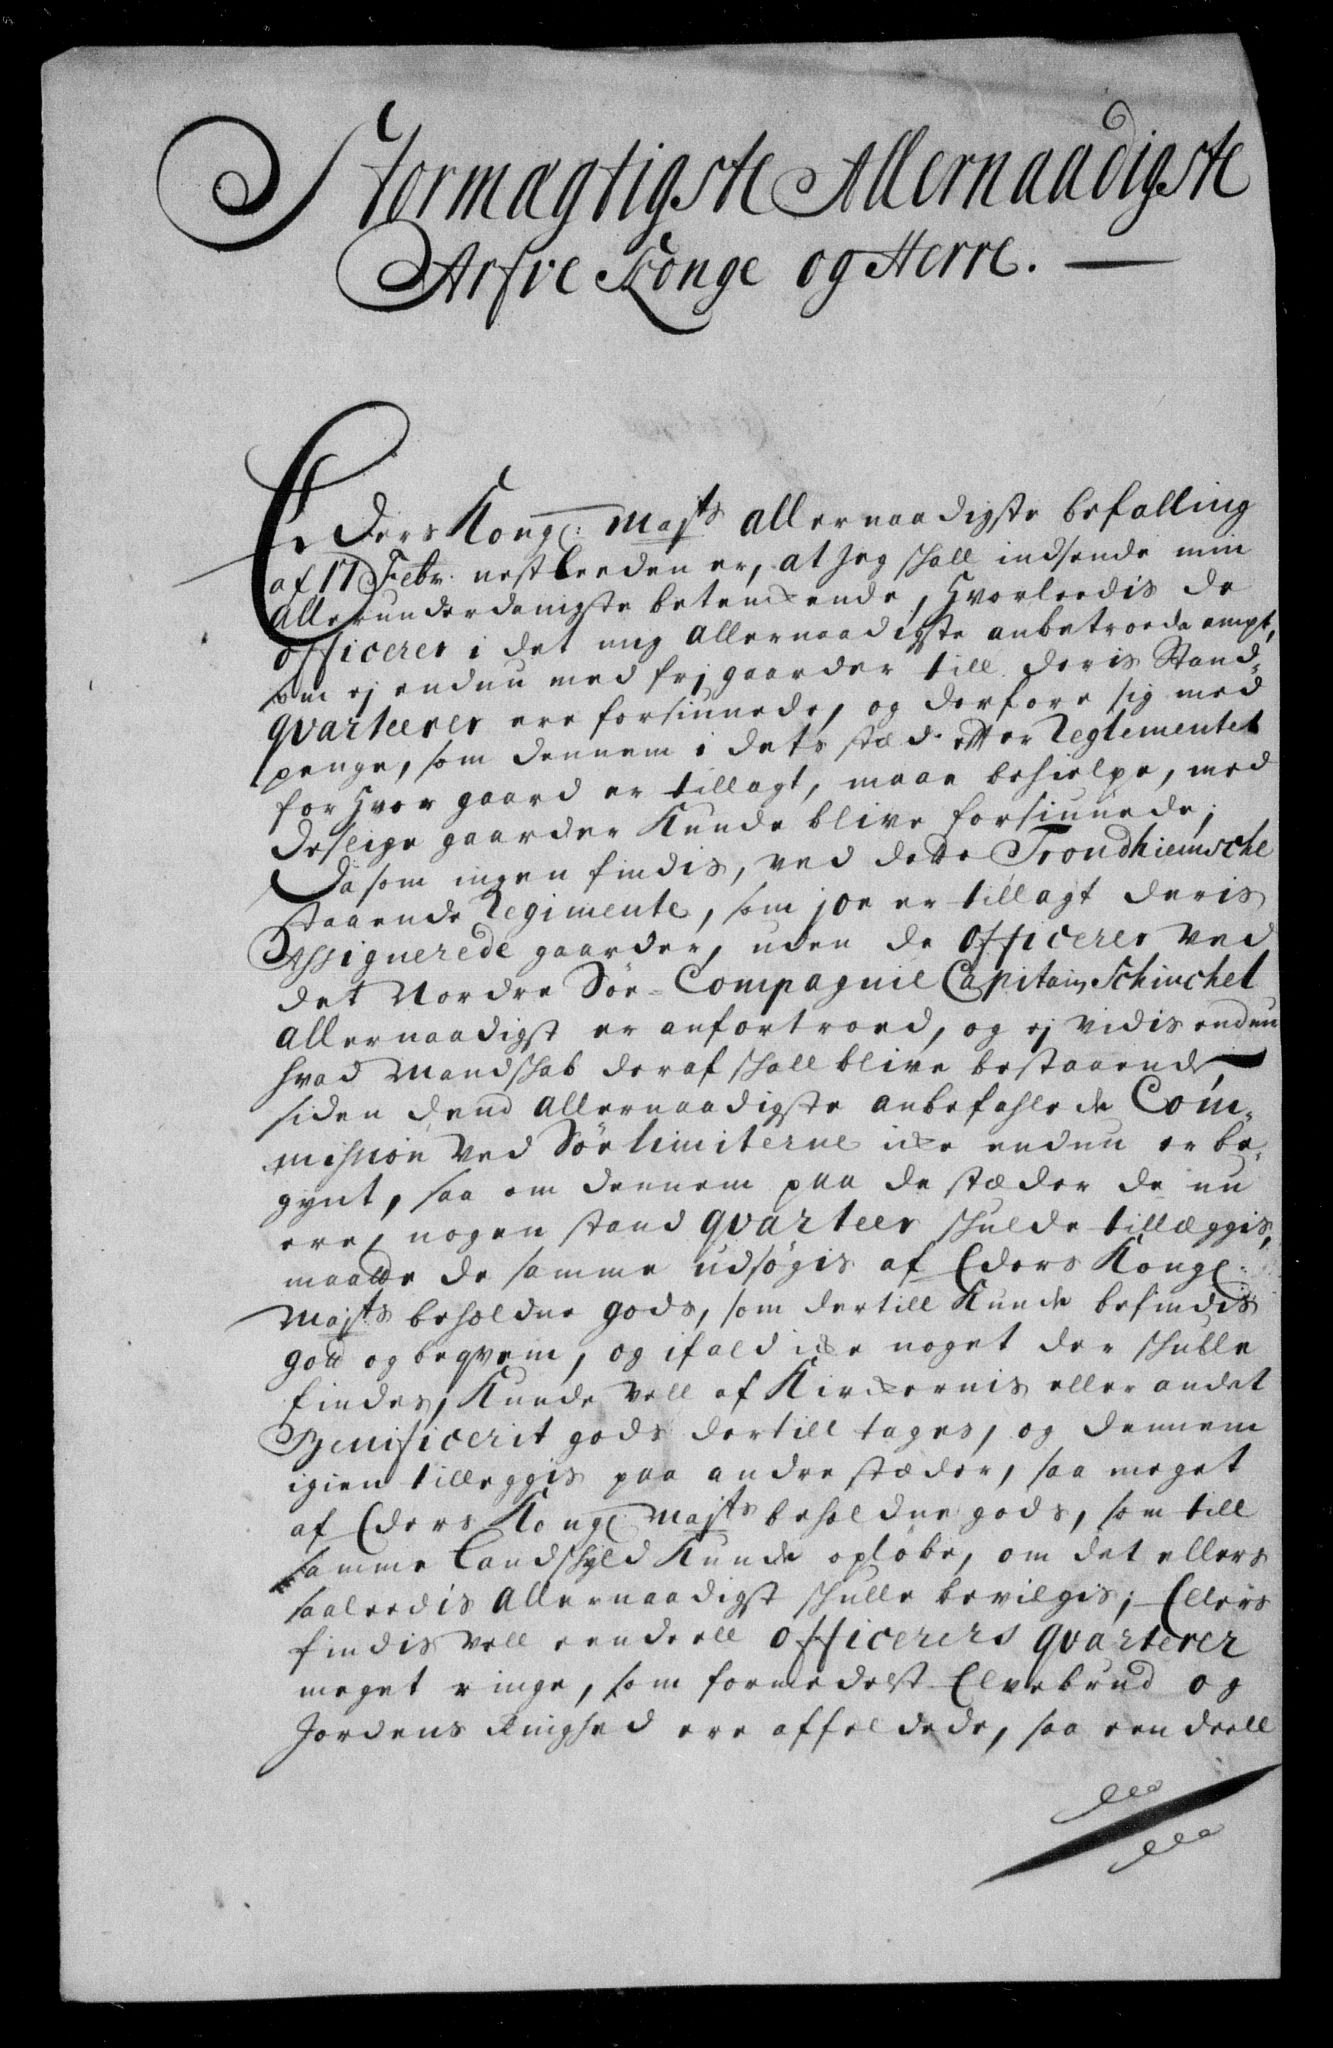 Stormægtigste Allernaadigste
Arfve Konge og Herre.
Eders Kongl: Majts allernaadigste befalling
af 17 Febr. nestleeden er, at jeg skall indsende min
allerunderdanigste betenckende, hvorleedis de
officerer i det mig allernaadigste anbetroede ampt,
som ej endnu med frj gaarder till deris Stand-
qvarteerer ere forsiunede, og derfore sig med
penge, som dennem i dets stæd etter Reglementet
for hver gaard er tillagt, maae behielpe, med
deslige gaarder kunde blive forsiunede;
Da som ingen findis, ved dette Trondhiemsche
staaende Regimente, som joe er tillagt deris
Assignerede gaarder, uden de officerer ved
det Nordre Søe-Compagnie Capitain Schinchel
allernaadigst er anfortroed, og ej vidis endnu
hvad Mandskab deraf skall blive bestaaende,
siden dend allernaadigste anbefahlede Com-
mission ved Søe limiterne icke endnu er be-
gynt, saa om dennem paa de stæder de nu
ere, nogen stand qvarteer skulde tillæggis,
maatte de samme udsøgis af Eders Kongl:
Majts beholdne gods, som dertill kunde befindis
god og beqvem, og ifald icke noget der skulle
findes, kunde vell af Kirckernis eller andet
Benificerit gods dertill tages, og dennem
igien tilleggis paa andre stæder, saa meget
af Eders Kongl: Majts beholdne gods, som till
samme Landskyld kunde opløbe, om det ellers
saaleedis allernaadigst skulle bevilgis; Ellers
findis vell eendeell officerers qvarterer
meget ringe, som formedelst Elvebrud og
Jordens Ringhed ere affeldede, saa eendeell